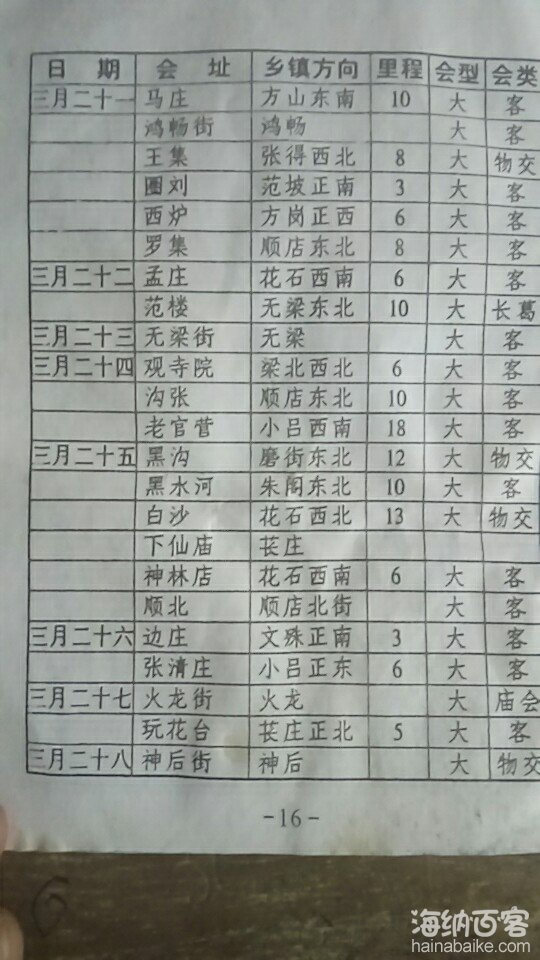 日 期 会 址 乡镇方向 里程 会型 会类
三月二十一 马庄 方山东南 10 大 客
鸿畅街 鸿畅 大 客
王集 张得西北 8 大 物交
圈刘 范坡正南 3 大 客
西炉 方岗正西 6 大 客
罗集 顺店东北 8 大 客
三月二十二 孟庄 花石西南 6 大 客
范楼 无梁东北 10 大 长葛
三月二十三 无梁街 无梁 大 客
三月二十四 观寺院 梁北西北 6 大 客
沟张 顺店东北 10 大 客
老官营 小吕西南 18 大 客
三月二十五 黑沟 磨街东北 12 大 物交
黑水河 朱阁东北 10 大 客
白沙 花石西北 13 大 物交
下仙庙 苌庄
神林店 花石西南 6 大 客
顺北 顺店北街 大 客
三月二十六 边庄 文殊正南 3 大 客
张清庄 小吕正东 6 大 客
三月二十七 火龙街 火龙 大 庙会
玩花台 苌庄正北 5 大 客
三月二十八 神后街 神后 大 物交
-16-
6
海纳百客
hainabaike.com